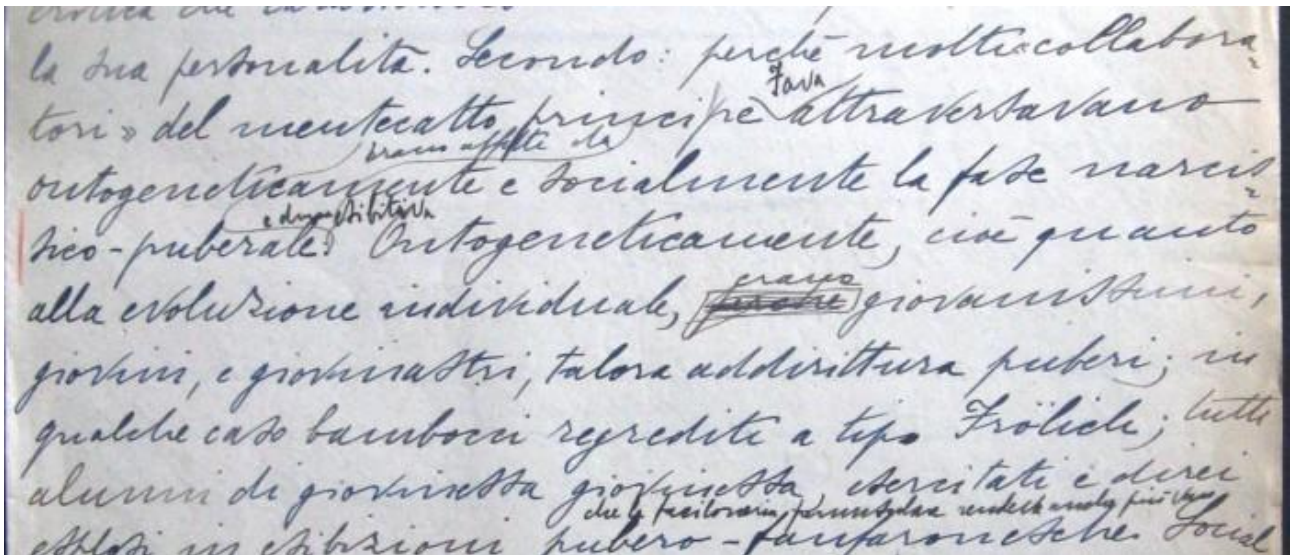 la sua personalità. Secondo: perché molti «collabora-
Fava
tori» del mentecatto principe attraversavano
erano affetti da
ontogeneticamente e socialmente la fase narcis-
sico-puberale. Ontogeneticamente, cioè quanto
erano
alla evoluzione individuale, giovanissimi,
giovini, e giovinastri, talora addirittura puberi; in
qualche caso bambocci regrediti a tipo Frölich; tutti
alunni di giovinezza giovinezza, esercitati e direi
che la
esplosi in esibizioni pubero-fanfaronesche. Social